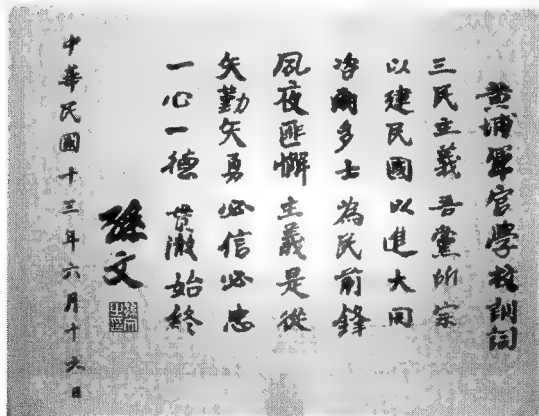 黃埔軍官學校訓詞
三民主義吾黨所宗
以建民國以進大同
咨爾多士為民前鋒
夙夜匪懈主義是從
矢勤矢勇必信必忠
一心一德貫澈始終
孫文
中華民國十三年六月十六日